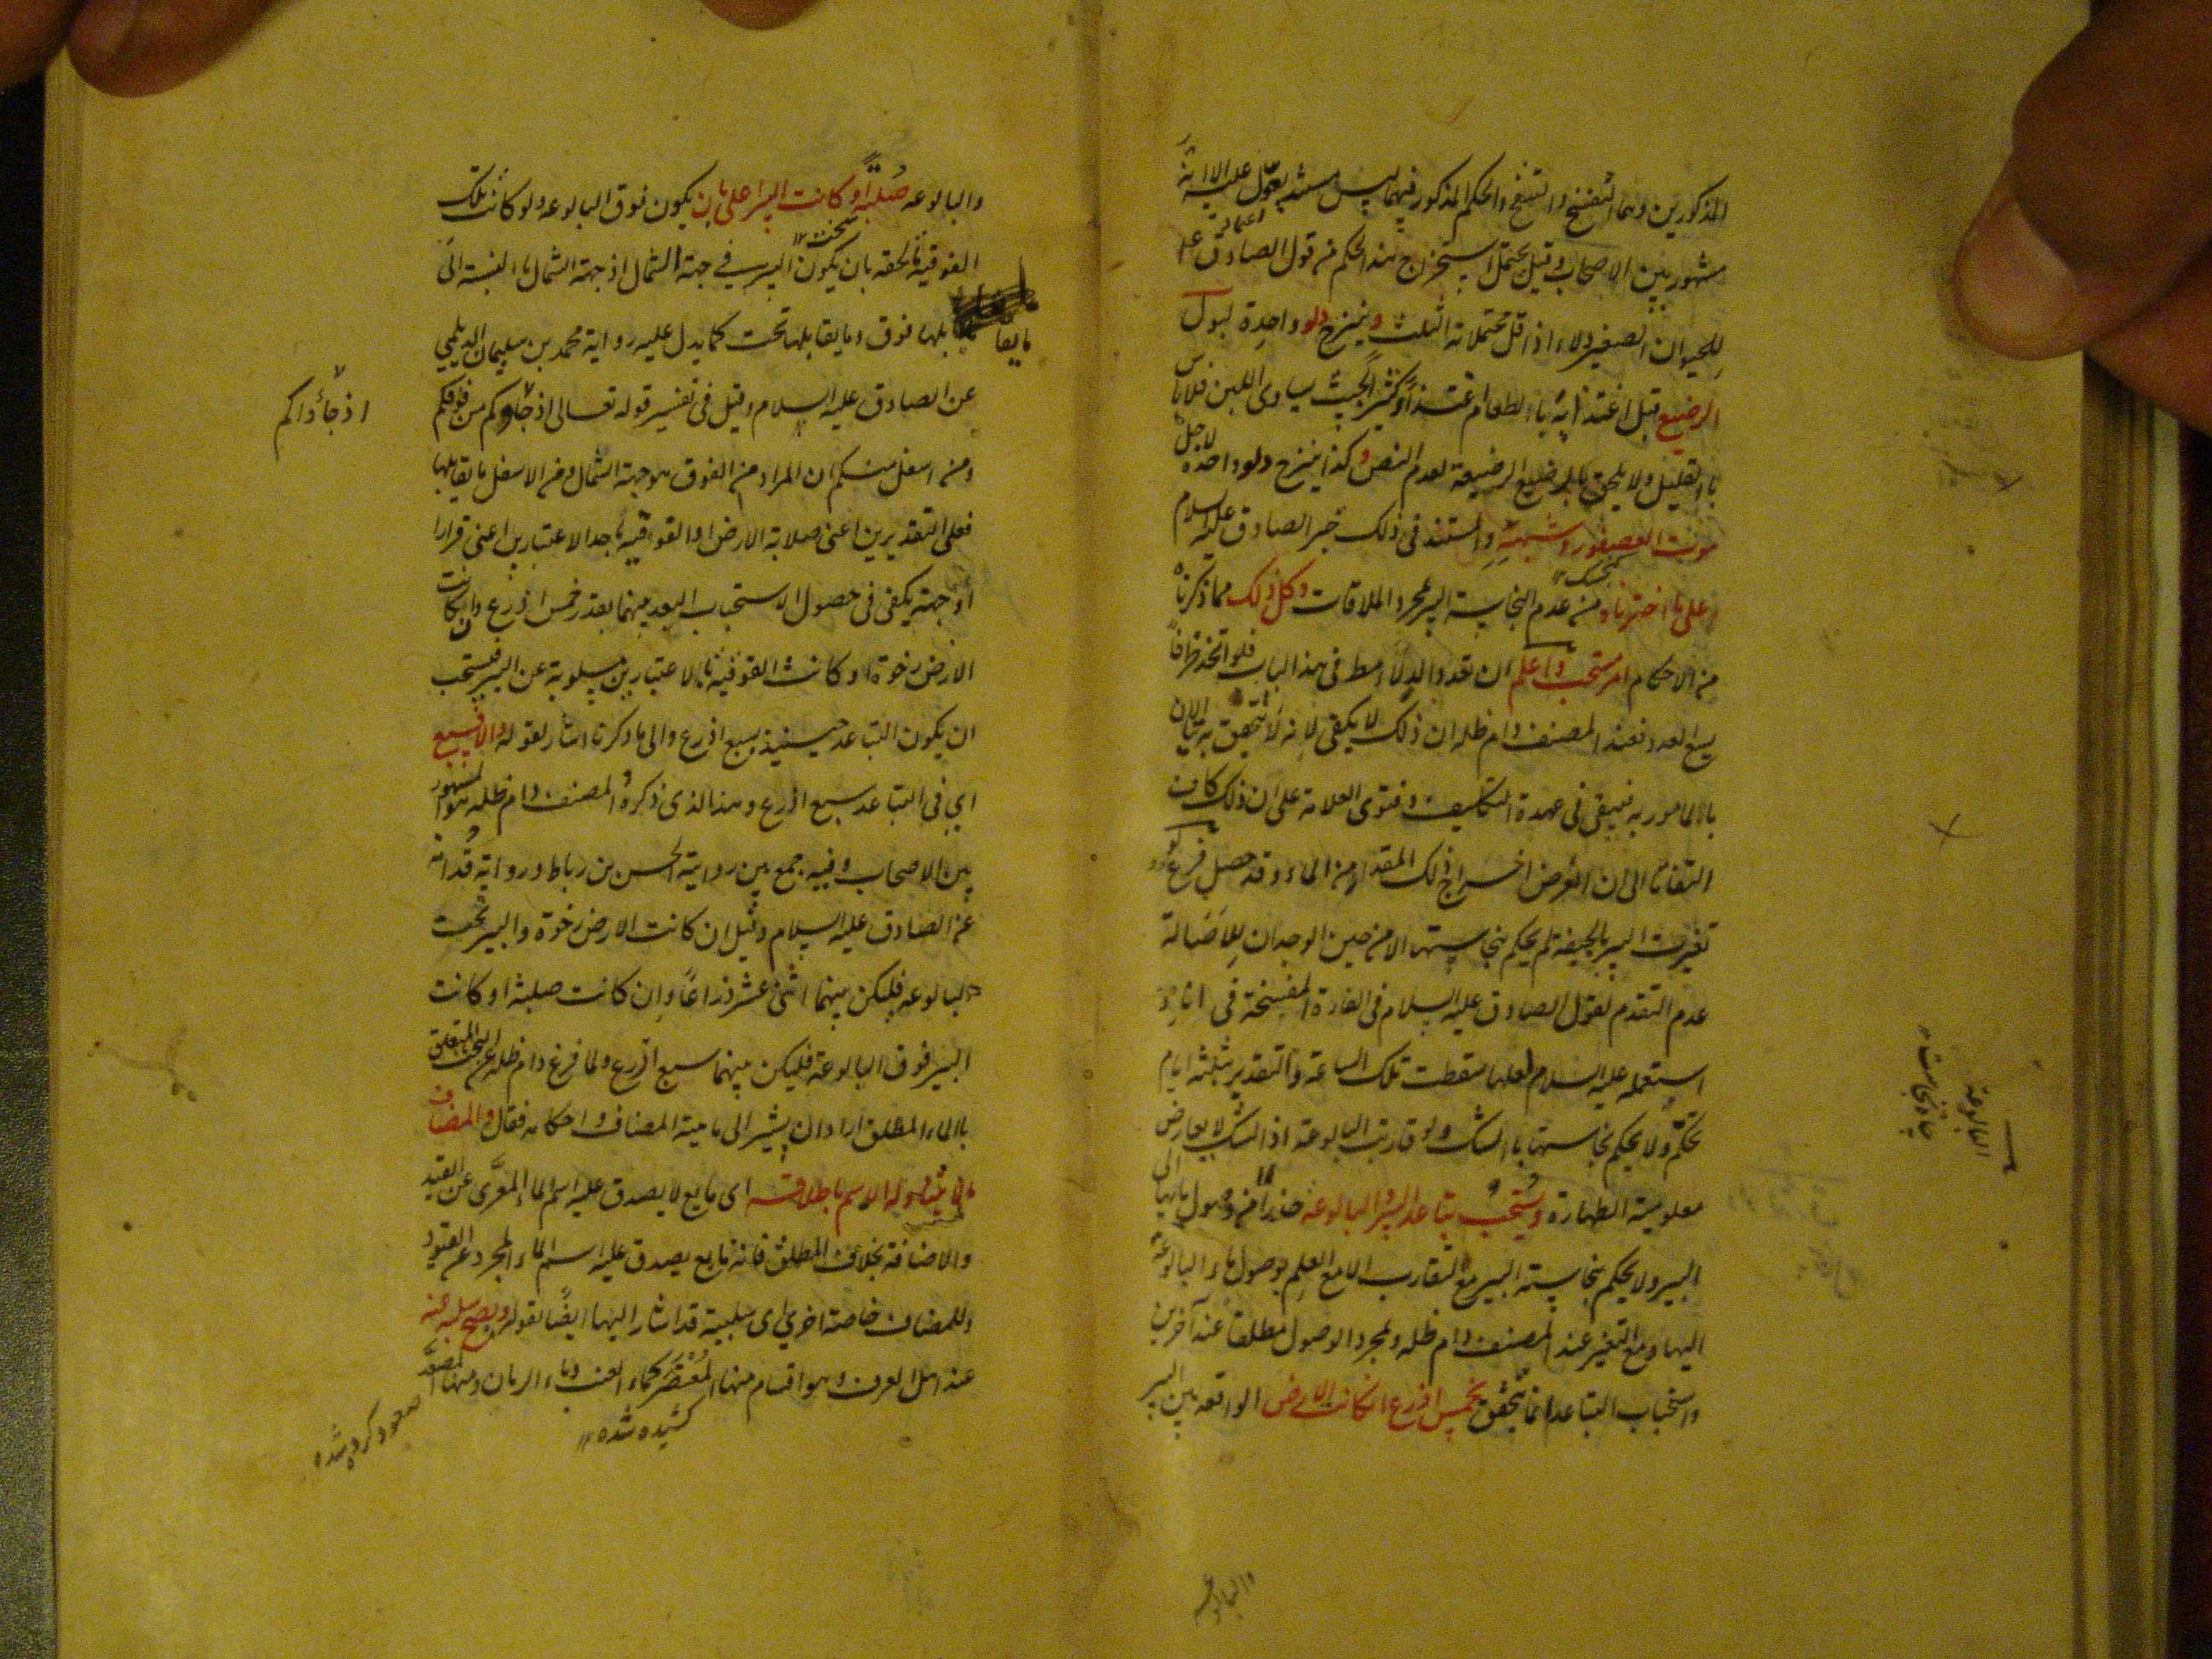 المذكورين وهما التفسخ والتنفخ والحكم المذكور فيهما ليس مستند يعول عليه الا انه
مشهور بين الاصحاب وقيل يحتمل استخراج هذا الحكم من قول الصادق ع
للحيوان الصغير دلاء اذ اقل محتملاته الثلث وينزح دلو واحدة لبول
الرضيع قبل اغتذائه بالطعام غتذاً وكثيراً بحيث يساوى اللبن فلا باس
بالقليل ولا يلحق بالرضيع الرضيعة لعدم النص وكذا ينزح دلو واحدة لاجل
موت العصفور وشبهه والمستند فى ذلك خبر الصادق عليه السلام
وعلى ما اخترناه من عدم النجاسة البير بمجرد الملاقات وكل ذلك مما ذكرناه
من الاحكام امر مستحب واعلم ان تعدد الدلاء مط فى هذا الباب فلو اتخذ ظرفاً
يسع العدد فعند المصنف دام ظله ان ذلك لا يكفى لانه لا يتحقق به الاتيان
بالمامور به فيبقى فى عهدة التكليف وفتوى العلامة على ان ذلك كاف
التفاتا الى ان الغرض اخراج ذلك المقدار من الماء وقد حصل فرع لو
تغيرت البير بالجيفة لم يحكم بنجاستها الا من حين الوجدان للاصالة
عدم التقدم لقول الصادق عليه السلام فى الفارة المفسخة فى اناء
استعمله عليه السلام لعلها سقطت تلك الساعة والتقدير بثلثة ايام
تحكم ولا يحكم بنجاستها بالشك ولو قاربت البالوعة اذ الشك لا يعارض
معلومية الطهارة ويستحب تباعد البير والبالوعه حذرا من وصول مائها الى
البير ولا يحكم بنجاسته البير مع التقارب الا مع العلم بوصول ماء البالوعة
اليها ومع التغير عند المصنف دام ظله ولمجرد الوصول مطلقا عند آخرين
واستحباب التباعد انما يتحقق بخمس اذرع ان كانت الارض الواقعه بين البير
والبالوعه
البالوعة
چاه نجاست
والبالوعه صلبة او كانت البير اعلى بان يكون فوق البالوعه ولو كانت تلك
الفوقية بالجهه بان يكون البير فى جهة الشمال اذ جهة الشمال بالنسبة الى
ما يقابلها فوق وما يقابلها تحت كما يدل عليه رواية محمد بن سليمان الديلمي
عن الصادق عليه السلام وقيل فى تفسير قوله تعالى اذ جاؤكم من فوقكم
اذ جاؤاكم
ومن اسفل منكم ان المراد من الفوق هو جهة الشمال ومن الاسفل ما يقابلها
فعلى التقديرين اعنى صلابة الارض او الفوقية باحد الاعتبارين اعنى قرارا
او جهة يكفى فى حصول الاستحباب البعد بينهما بقدر خمس اذرع وان كانت
الارض رخوة او كانت الفوقية بالاعتبارين مسلوبة عن البير فيستحب
ان يكون التباعد حينئذ بسبع اذرع والى ما ذكرنا اشار بقوله والا فسبع
اي فى التباعد سبع اذرع وهذا الذى ذكره المصنف دام ظله هو المشهور
بين الاصحاب وفيه جمع بين رواية الحسن بن رباط ورواية قدامة
عن الصادق عليه السلام وقيل ان كانت الارض رخوة والبير تحت
البالوعه فليكن بينهما اثنى عشر ذراعاً وان كانت صلبة او كانت
البير فوق البالوعة فليكن بينهما سبع اذرع ولما فرغ دام ظله عن البحث المتعلق
بالماء المطلق اراد ان يشير الى ماهية المضاف واحكامه فقال والمضاف
ما لا يتناوله الاسم باطلاقه اى مايع لا يصدق عليه اسم الماء المعرى عن القيد
والاضافة بخلاف المطلق فانه مايع يصدق عليه اسم الماء المجرد عن القيود
وللمضاف خاصة اخرى اى سلبية قد اشار اليها ايضًا بقوله ويصح سلبه عنه
عند اهل العرف وهو اقسام منها المعتصر كماء العنب وماء الرمان ومنها المصعد
كشيده شده
صعود كرده شده